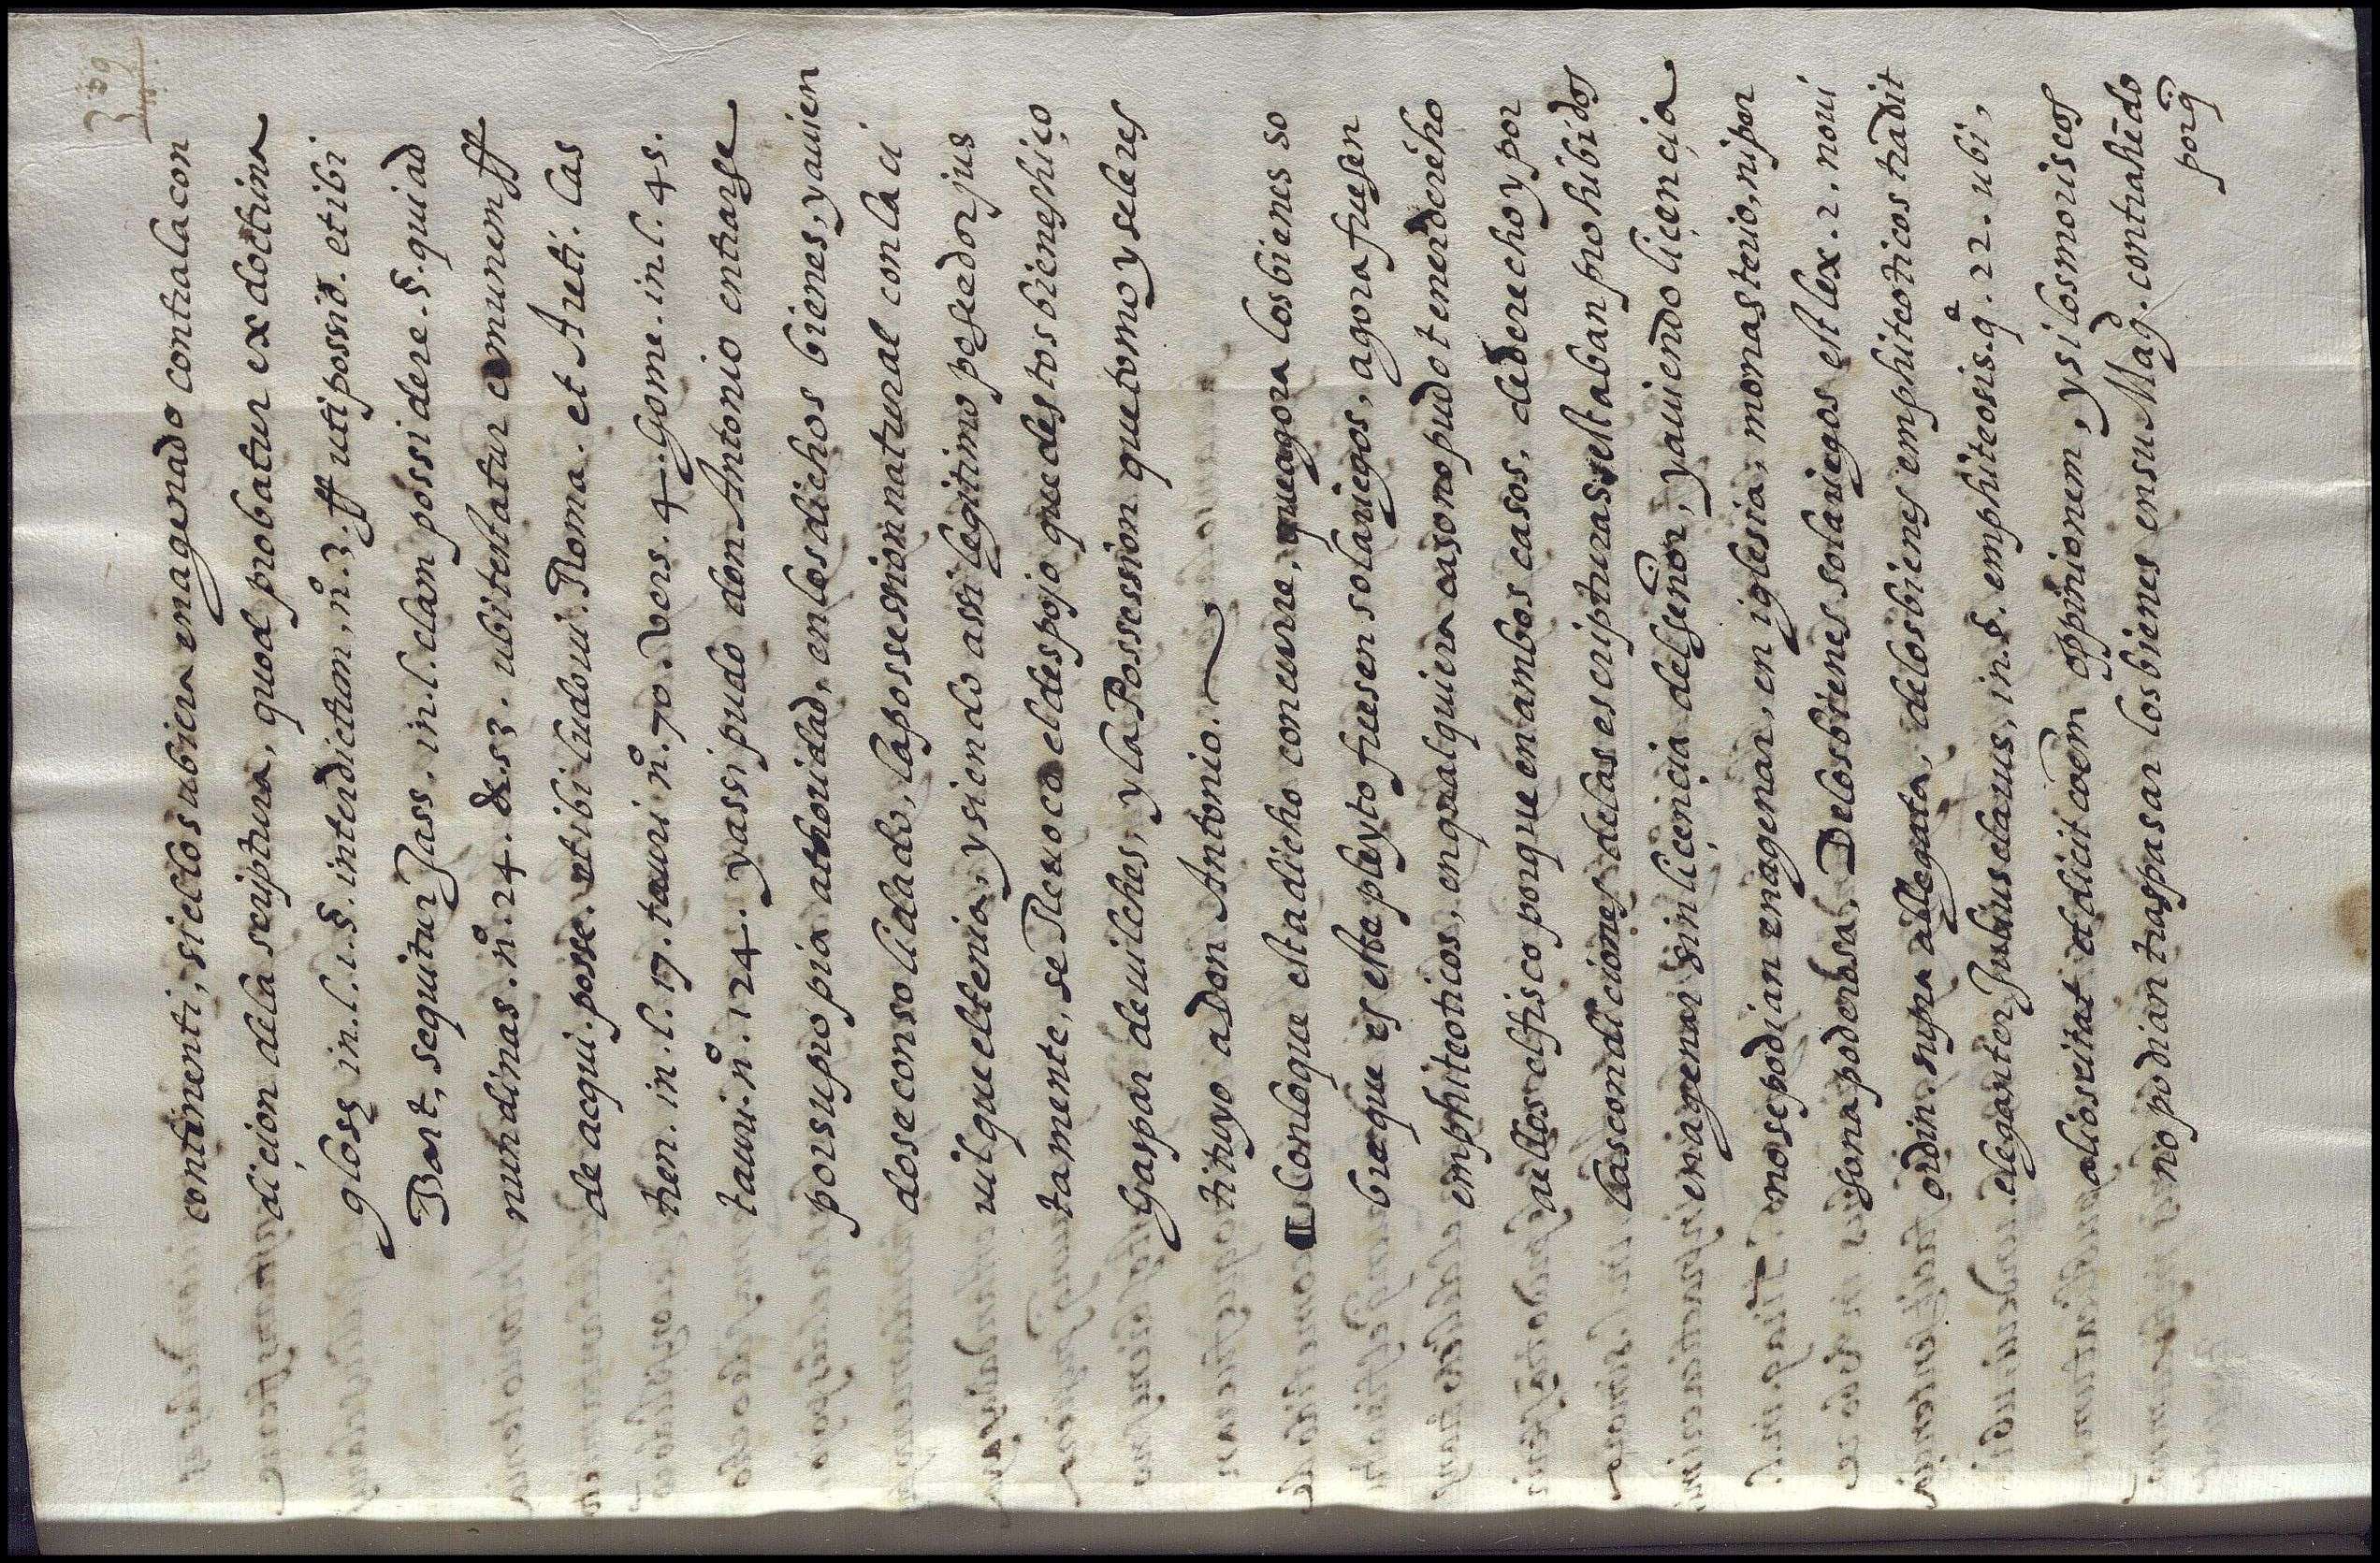 continenti, si ellos abiera enagenado contra la con
dicion dela scriptura, quod probatur ex doctrina
gloss in. l. 1. §. interdictum, nº. 3. ff uti possid. et ibi
Bart, sequitur Jass. in. l. clam possidere. §. qui ad
nundinas. nº. 24. & 53. ubi testatur comunem ff
de acqui. posse. et ibi ludoui. Roma. et Areti. Cas
tren. in. l. 17. tauri nº. 70. vers. 4. Gome. in. l. 45.
tauri. nº. 124. y assi pudo don Antonio entrarse
por su propia athoridad, en los dichos bienes, y auien
dose consolidado, la possession natural con la ci
uil que el tenia, y siendo assi legitimo poseedor jus
tamente, se Reuoco el despojo que destos bienes hiço
Gaspar de uilches, y la Possession que tomo y se le res
tituyo a don Antonio.
Con lo que esta dicho concurre, que agora los bienes so
bre que es este pleyto fuesen solariegos, agora fuesen
emphiteoticos, en qualquiera caso no pudo tener derecho
a ellos el fisco porque en ambos casos, de derecho y por
las condiciones de las escripturas estaban prohibidos
enagenar sin licencia del señor, y auiendo licencia
no se podian enagenar, en iglesia, monasterio, ni por
sona poderosa, De los bienes solariegos est lex. 2. noui
ordin supra allegata, de los bienes emphiteoticos tradit
eleganter Julius clarus, in. §. emphiteosis. qª. 22. ubi,
alios citat et dicit coēm oppinionem, y si los moriscos
no podian traspasar los bienes en su Magd. contrahēdo
porq̄